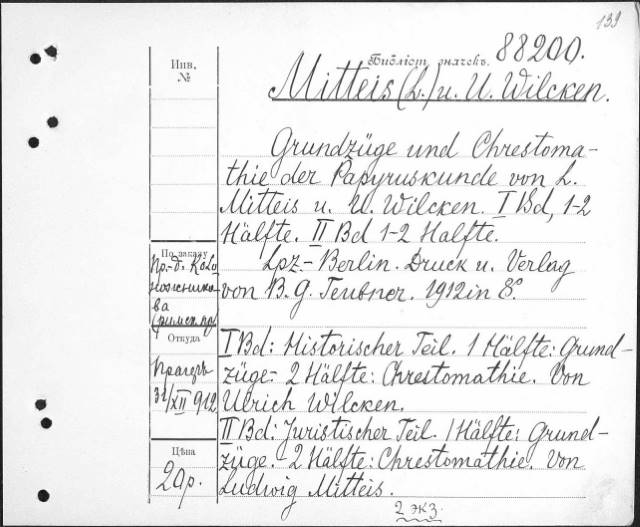 139
Библіот. значекъ. 88200.
Инв.
№
Mitteis (L.) u. U. Wilcken.
Grundzüge und Chrestoma-
thie der Papyruskunde von L.
Mitteis u. U. Wilcken. I Bd, 1-2
Hälfte. II Bd 1-2 Halfte.
Lpz.- Berlin. Druck u. Verlag
von B. G. Teubner. 1912 in 8º.
I Bd: Historischer Teil. 1 Hälfte: Grund-
züge.- 2 Hälfte: Chrestomathie. Von
Ulrich Wilcken.
II Bd: Juristischer Teil. 1 Hälfte: Grund-
züge. 2 Hälfte: Chrestomathie. Von
Ludwig Mitteis.
По заказу
Пр.-д.
ва
Откуда
Прагеръ
31/XII 912
Цѣна
2 экз.